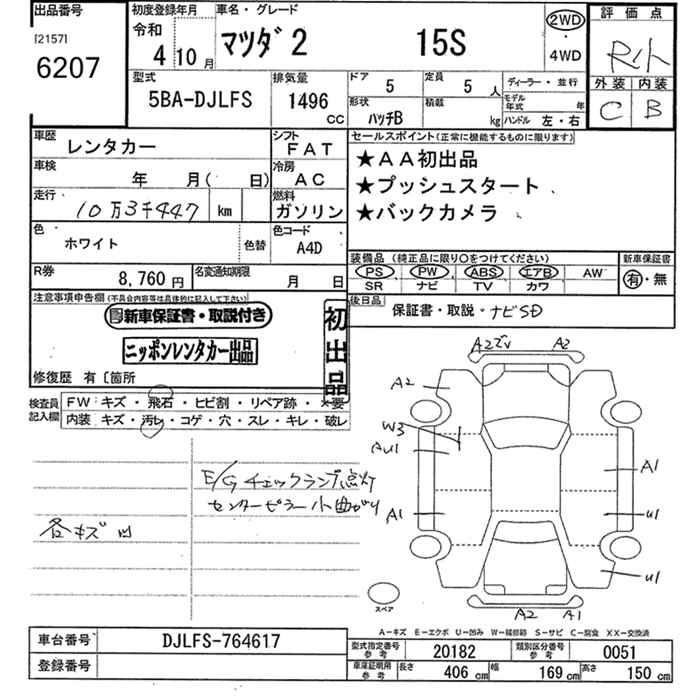 出品番号
[2157]
6207
初度登録年月
令和
4 10月
車名・グレード
マツダ2 15S
2WD
・
4WD
評価点
外装 内装
C B
型式
5BA-DJLFS
排気量
1496
CC
ドア
5
定員
5人
形状
ハッチB
積載
kg
ディーラー・並行
モデル年式 年
ハンドル 左・右
車歴
レンタカー
シフト
FAT
車検
年 月( 日)
冷房
AC
走行
10万3千447 km
燃料
ガソリン
色
ホワイト
色替
色コード
A4D
R券
8,760円
名変通知期限
月 日
セールスポイント(正常に機能するものに限ります)
★AA初出品
★プッシュスタート
★バックカメラ
装備品(純正品に限り○をつけてください)
PS PW ABS エアB AW
SR ナビ TV カワ
新車保証書
有・無
後日品
保証書・取説・ナビSD
注意事項申告欄(不具合内容等は具体的に記入して下さい)
新車保証書・取説付き
ニッポンレンタカー出品
初出品
修復歴 有〔箇所
検査員記入欄
FW キズ・飛石・ヒビ割・リペア跡・×要
内装 キズ・汚レ・コゲ・穴・スレ・キレ・破レ
E/Gチェックランプ点灯
センターピラー小曲がり
各キズ凹
A2ズレ A2
A2
W3
AU1
A1
A1
U1
U1
A2 A1
スペア
A-キズ E-エクボ U-凹み W-補修跡 S-サビ C-腐食 XX-交換済
車台番号
DJLFS-764617
登録番号
型式指定番号参考
20182
類別区分番号参考
0051
車庫証明用参考
長さ 406cm 幅 169cm 高さ 150cm